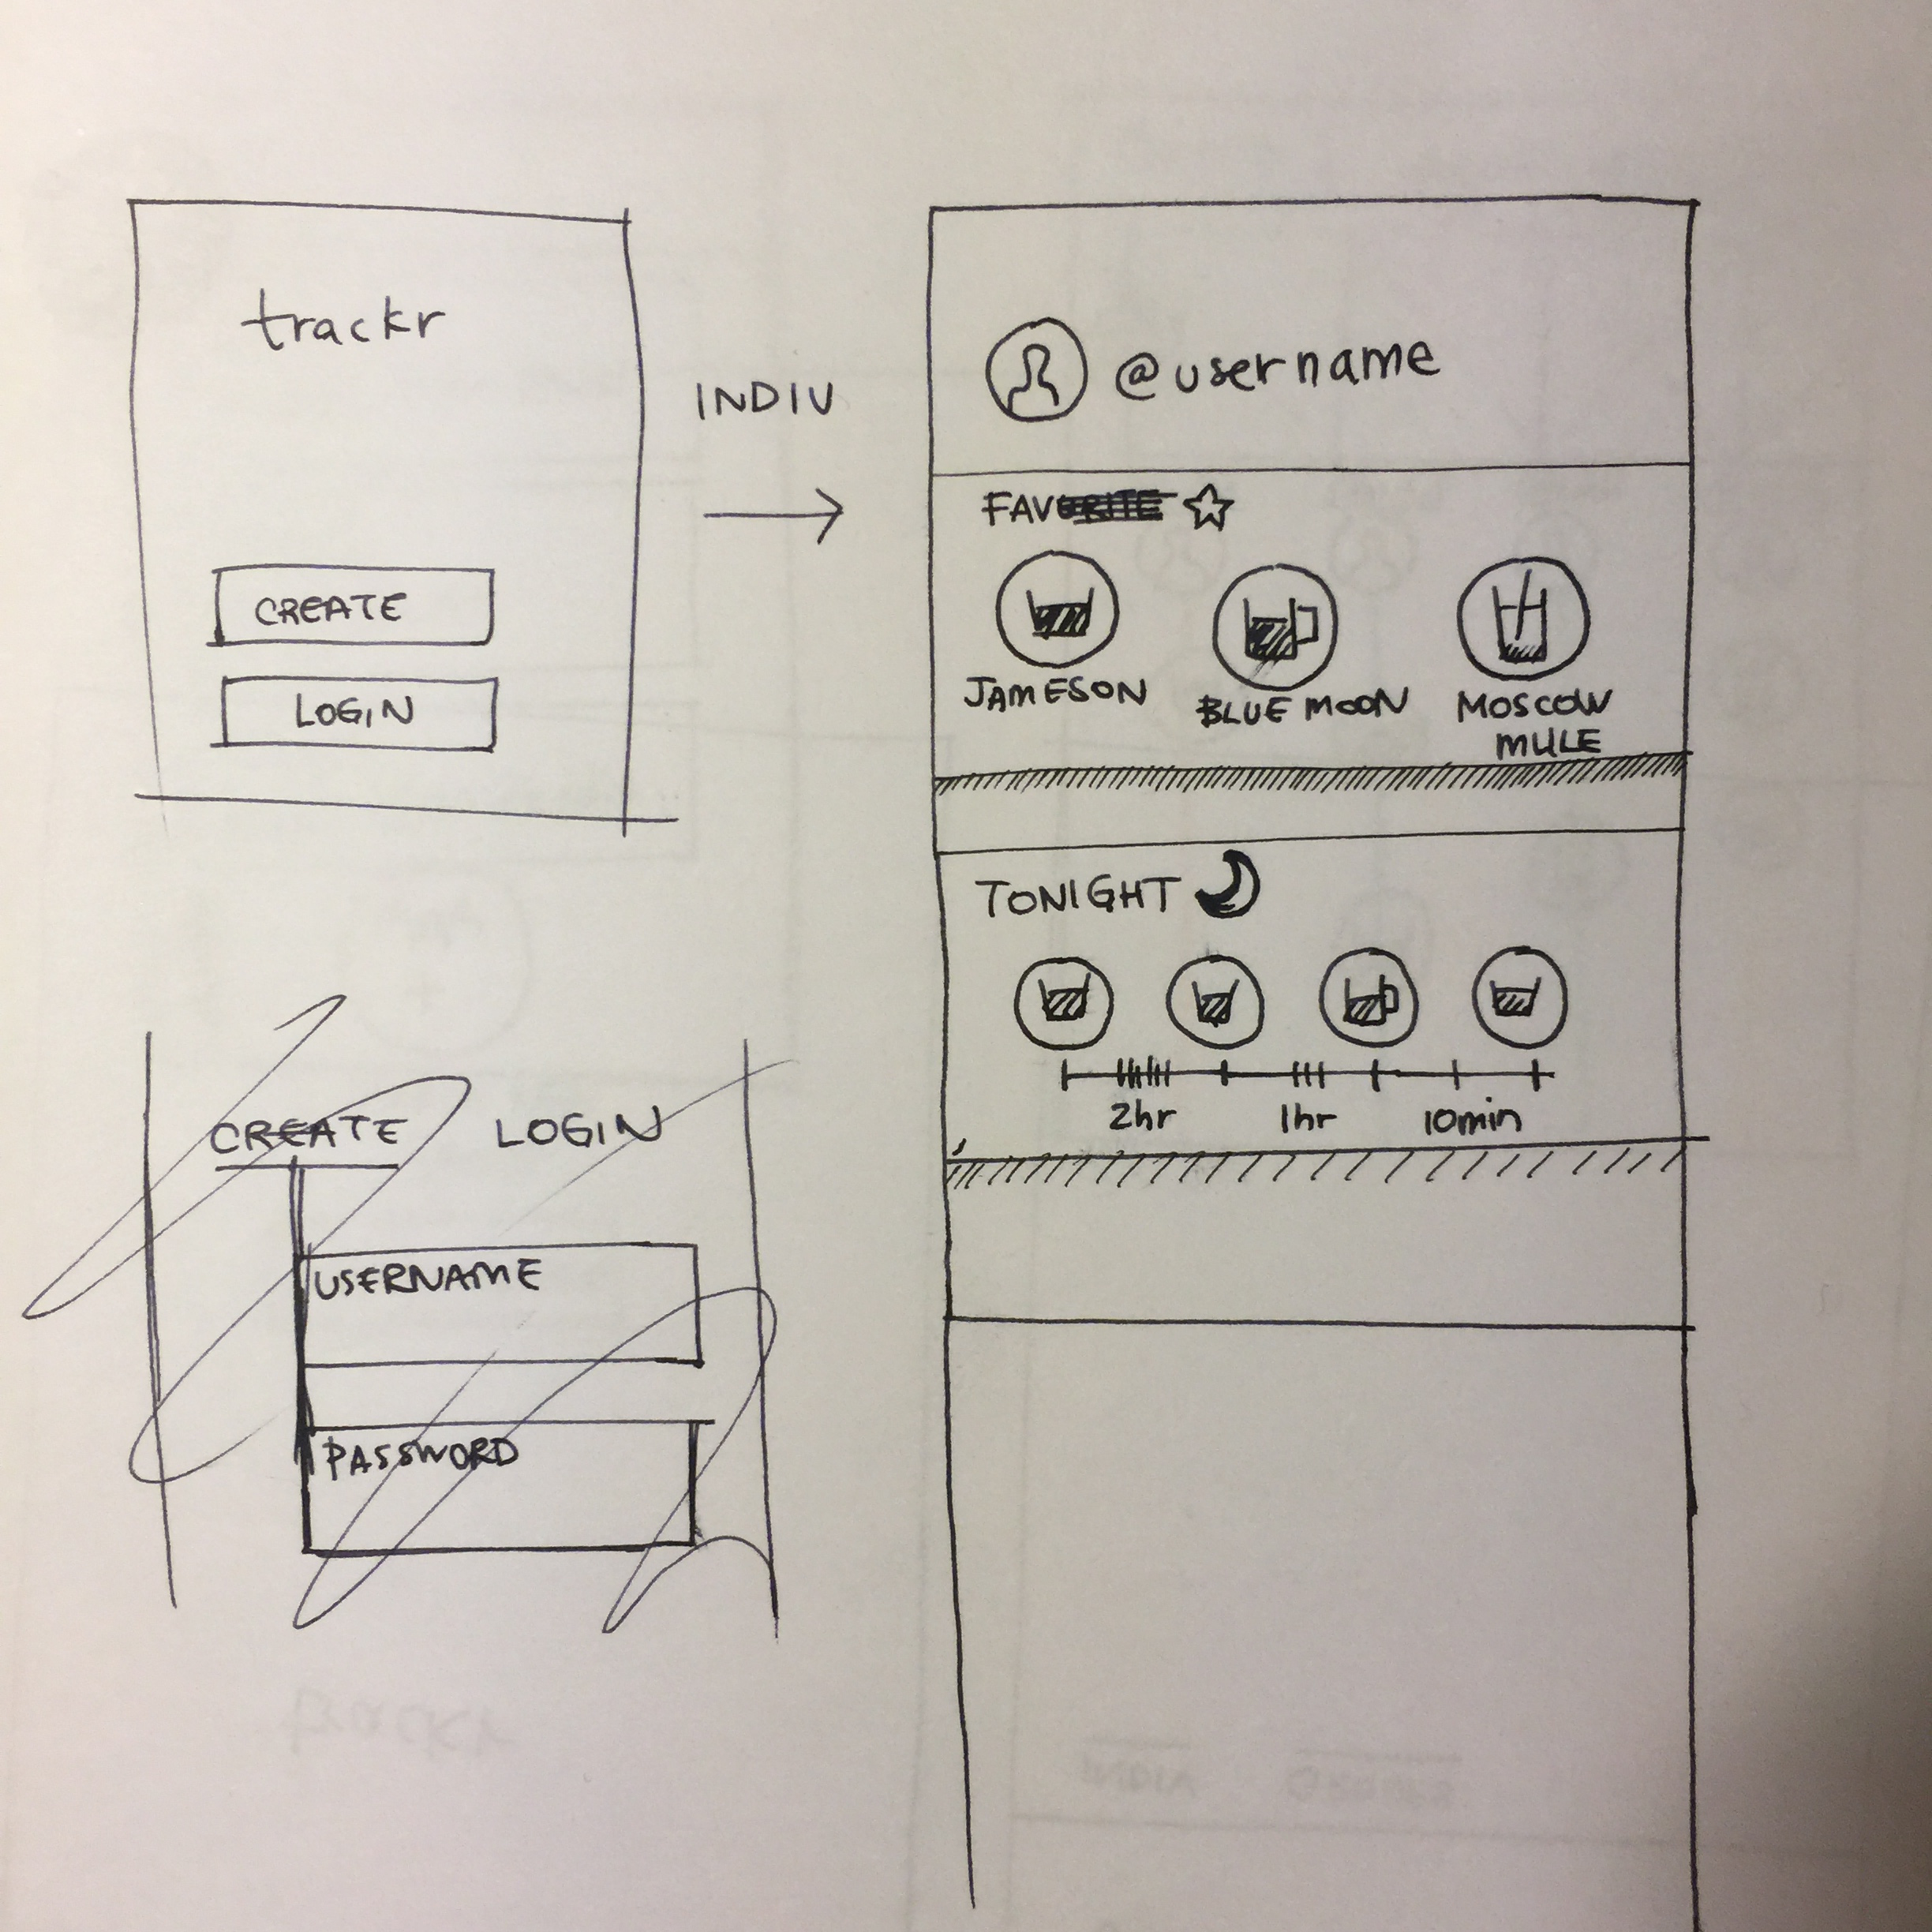 trackr
CREATE
LOGIN
INDIV
@username
FAVORITE
JAMESON
BLUE MOON
MOSCOW
MULE
TONIGHT
2hr
1hr
10min
CREATE
LOGIN
USERNAME
PASSWORD
trackr
INDIV